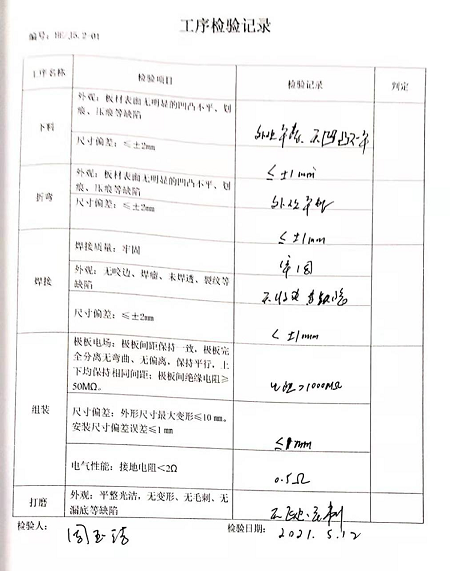 工序检验记录
工序名称 检验项目 检验记录 判定
下料 外观：板材表面无明显的凹凸不平、划
痕、压痕等缺陷
尺寸偏差：≤±2mm ≤±1mm
折弯 外观：板材表面无明显的凹凸不平、划
痕、压痕等缺陷
尺寸偏差：≤±2mm ≤±1mm
焊接 焊接质量：牢固 牢固
外观：无咬边、焊瘤、未焊透、裂纹等
缺陷
尺寸偏差：≤±2mm <±1mm
组装 极板电场：极板间距保持一致，极板完
全分离无弯曲、无偏离，保持平行，上
下均保持相同间距；极板间绝缘电阻≥
50MΩ。 电阻>1000MΩ
尺寸偏差：外形尺寸最大变形≤10mm。
安装尺寸偏差误差≤1mm
电气性能：接地电阻<2Ω 0.5Ω
打磨 外观：平整光洁，无变形、无毛刺、无
漏底等缺陷
检验人： 检验日期：2021.5.12